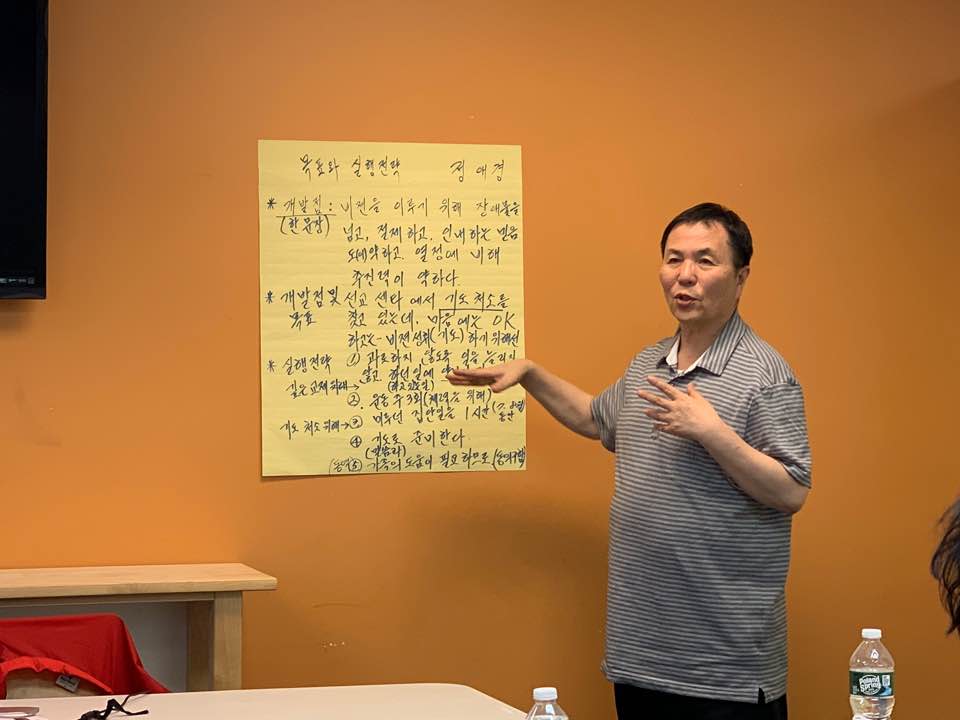 목표와 실행전략 정애경
* 개발점: 비젼을 이루기 위해 장애물을
(한 문장) 넘고, 절제하고, 인내하는 믿음
도 약하고 열정에 비해
추진력이 약하다.
* 개발점및 선교 센타에서 기도처소를
목표 찾고 있는데, 마음에는 OK
하고는 - 비젼성취(기도)하기 위해선
* 실행전략 ① 과로하지 않도록 일을 늘리지
않고 하던일에
깊은 교제 위해→ (하고있는일)
②. 운동 주 3회 (체력을 위해)
기도 처소 위해→③ 미루던 집안일을 1시간
④ 기도로 준비한다
(말씀과)
⑤ 가족의 도움이 필요하므로
POLAND SPRING